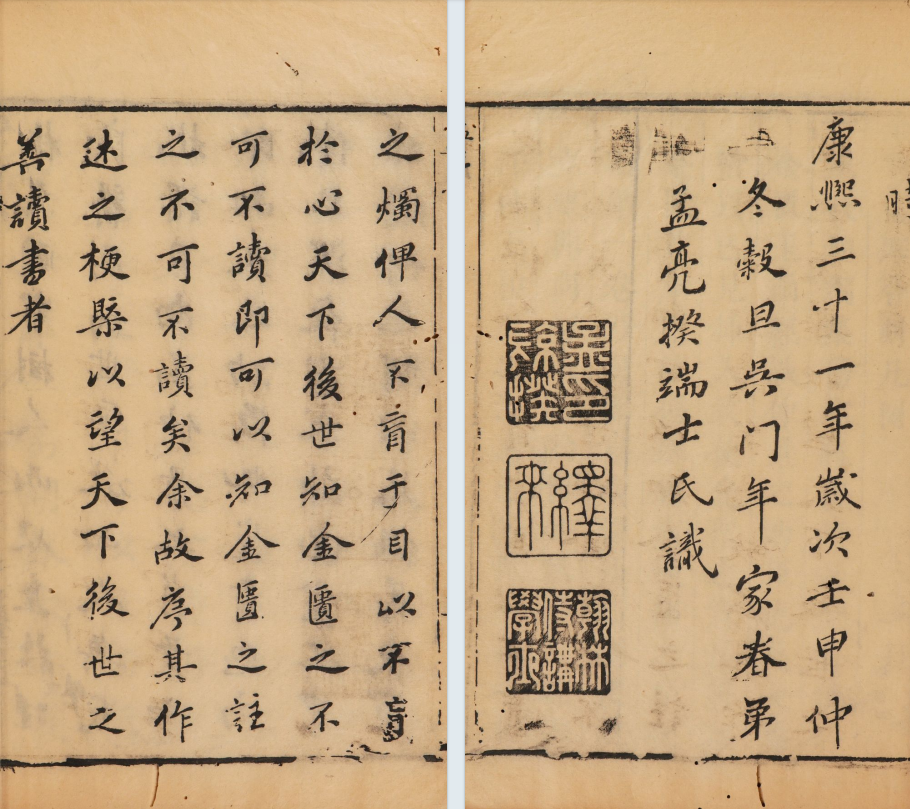 之燭俾人不盲于目以不盲
於心天下後世知金匱之不
可不讀即可以知金匱之註
之不可不讀矣余故序其作
述之梗槩以望天下後世之
善讀書者
康熙三十一年歲次壬申仲
冬穀旦吳门年家眷弟
孟亮揆端士氏識
孟印亮揆
繹來
翰林侍講學士